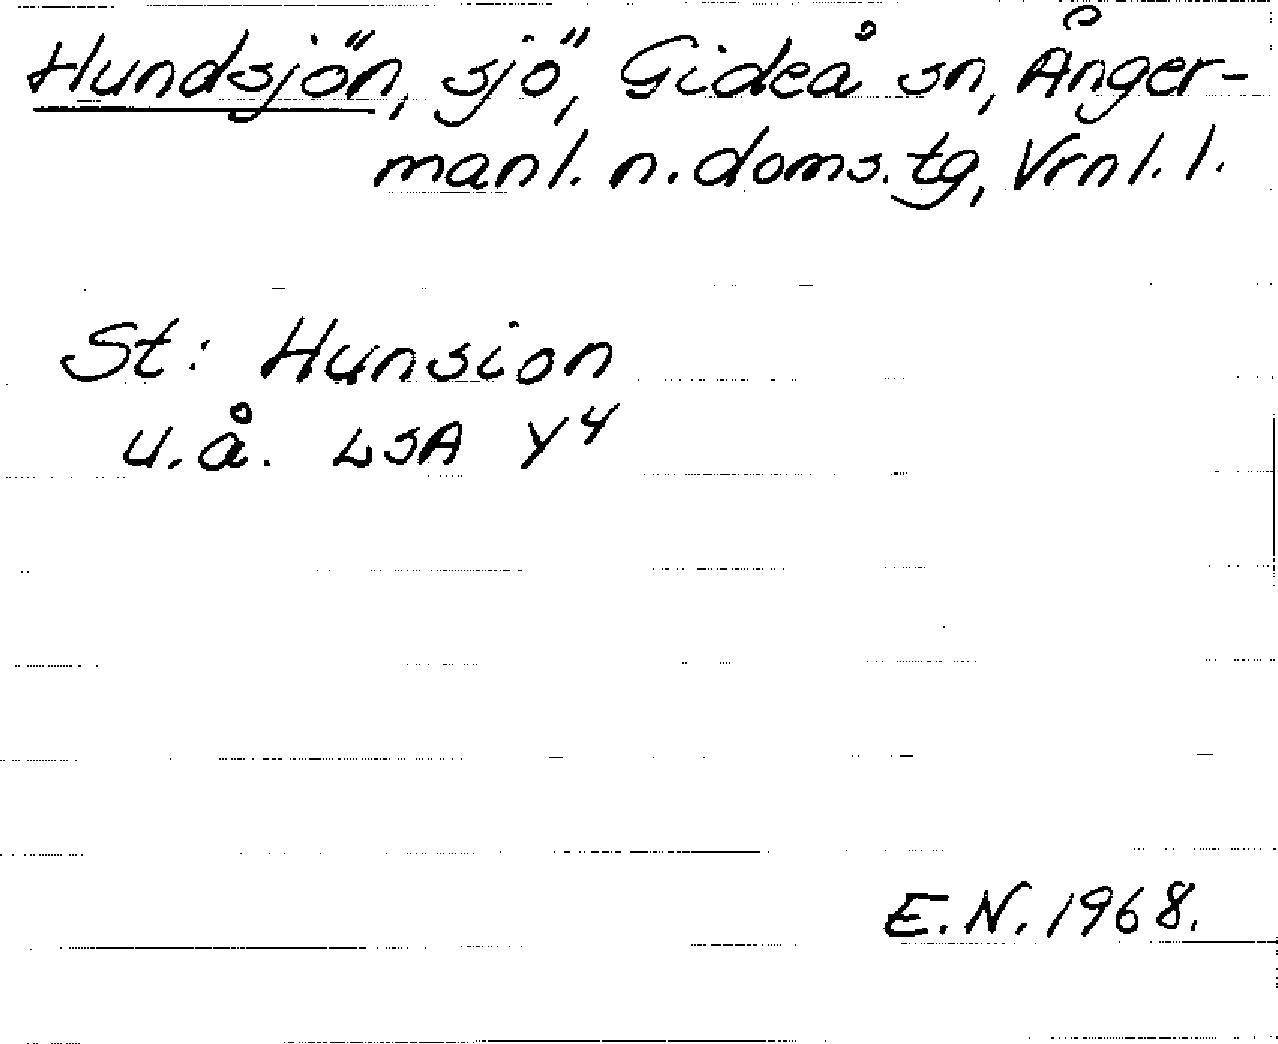 Hundsjön, sjö, Gideå sn, Ånger-
manl. n. doms. tg, Vrnl. l.
St: Hunsion
u.å. LSA Y4
E.N. 1968.